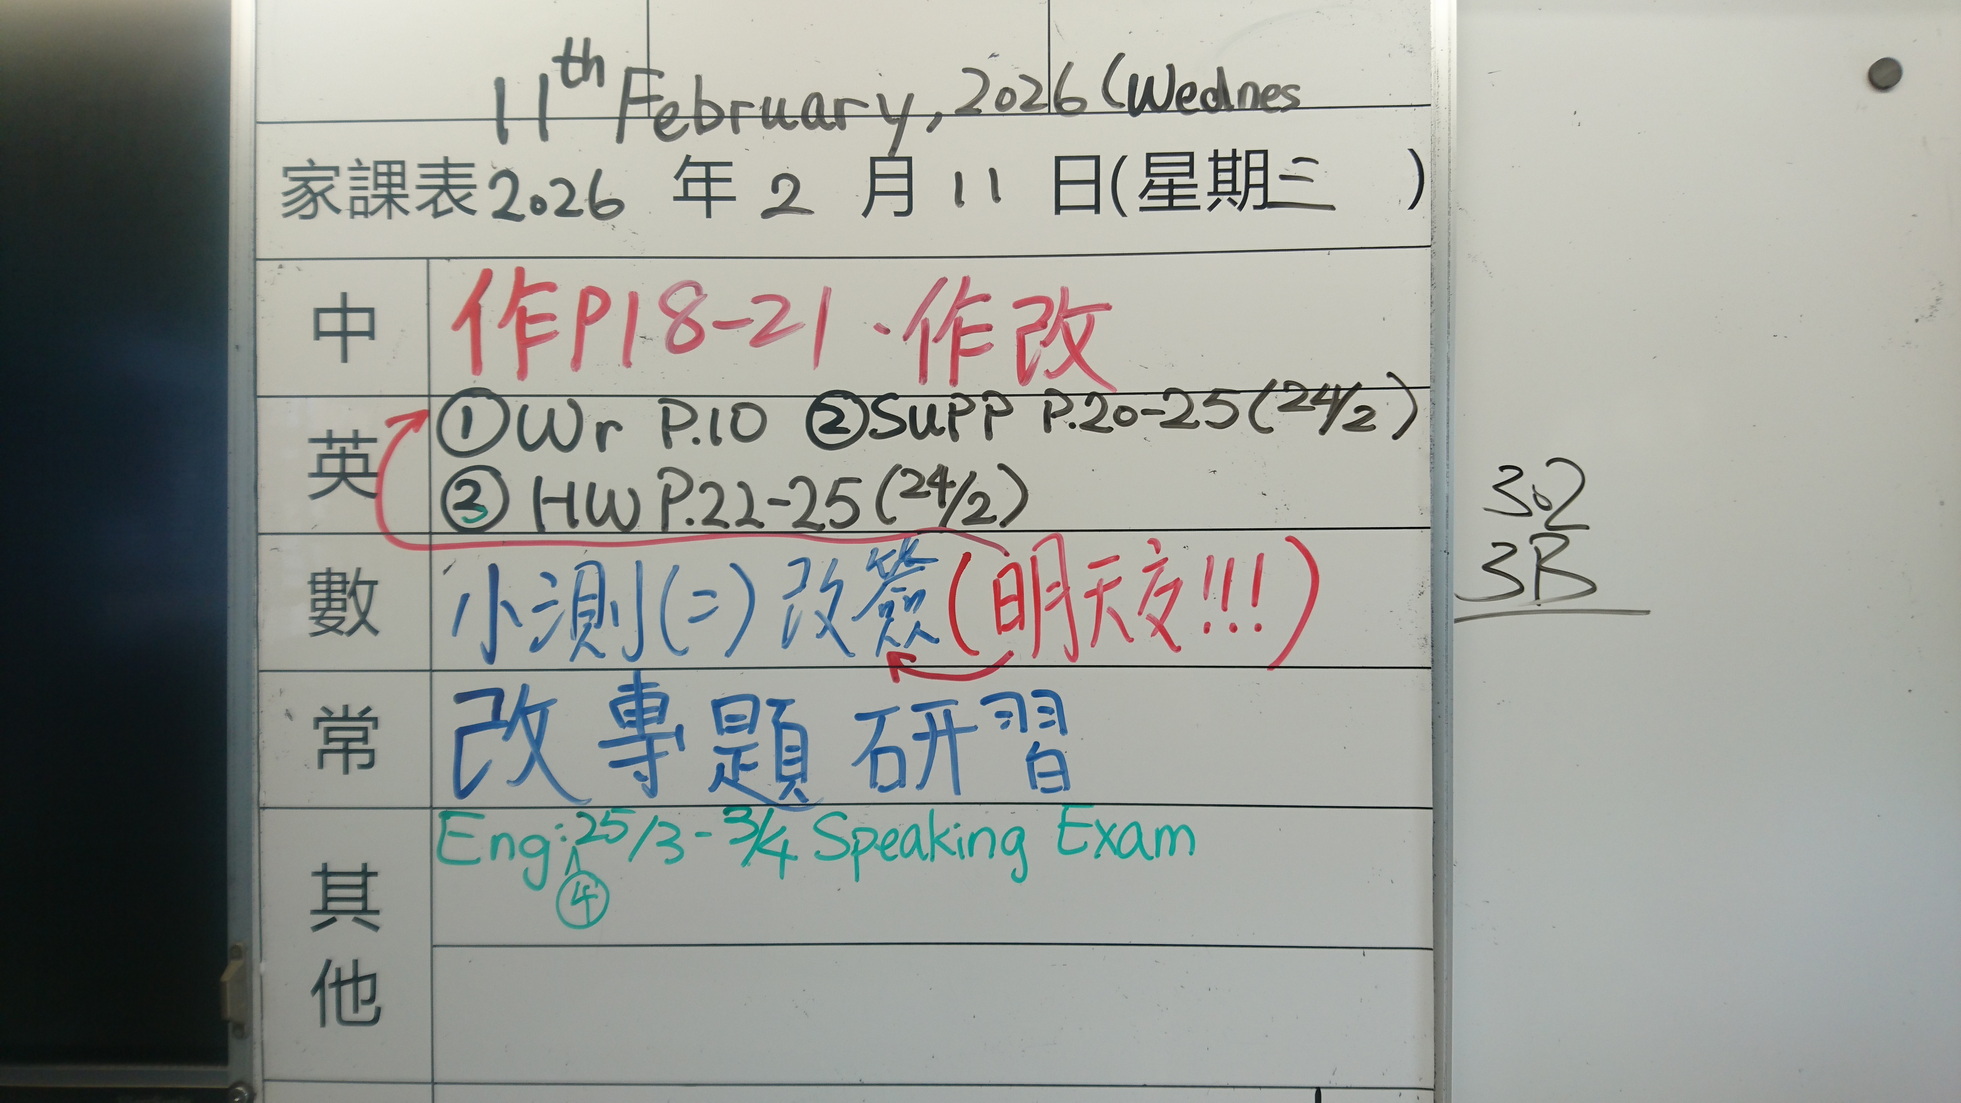 11th February, 2026 (Wednes
家課表 2026 年 2 月 11 日(星期三 )
中 作P18-21、作改
英 ①Wr P.10 ②Supp P.20-25(24/2)
③ HW P.22-25(24/2)
數 小測(二)改簽(明天交!!!)
常 改專題研習
其他 Eng: 25/3-3/4 Speaking Exam
④
302
3B